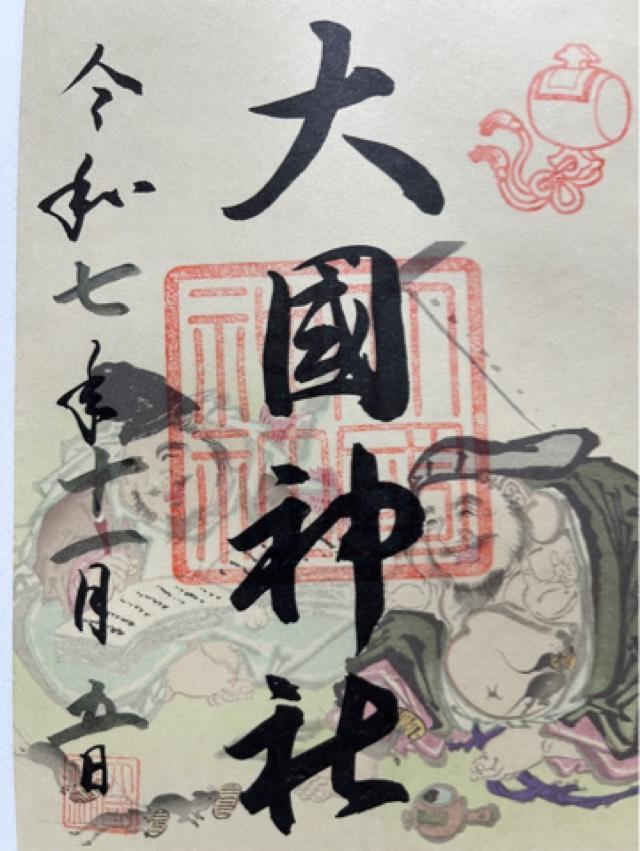 大國神社
令和七年十一月五日